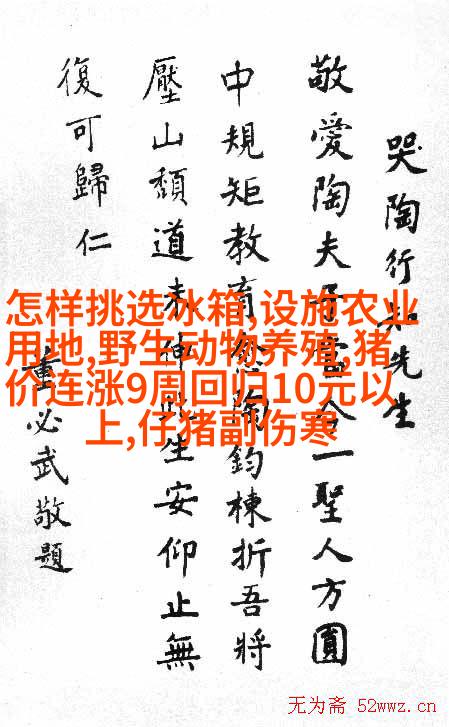 哭陶行知先生
敬愛陶夫子當今一聖人方圓
中規矩教育陶鈞棟折吾將
壓山頹道未伸此生安仰止無
復可歸仁
董必武敬題
怎样挑选冰箱,设施农业
用地,野生动物养殖,猪
价连涨9周回归10元以
上,仔猪副伤寒
无为斋 52wwz.cn